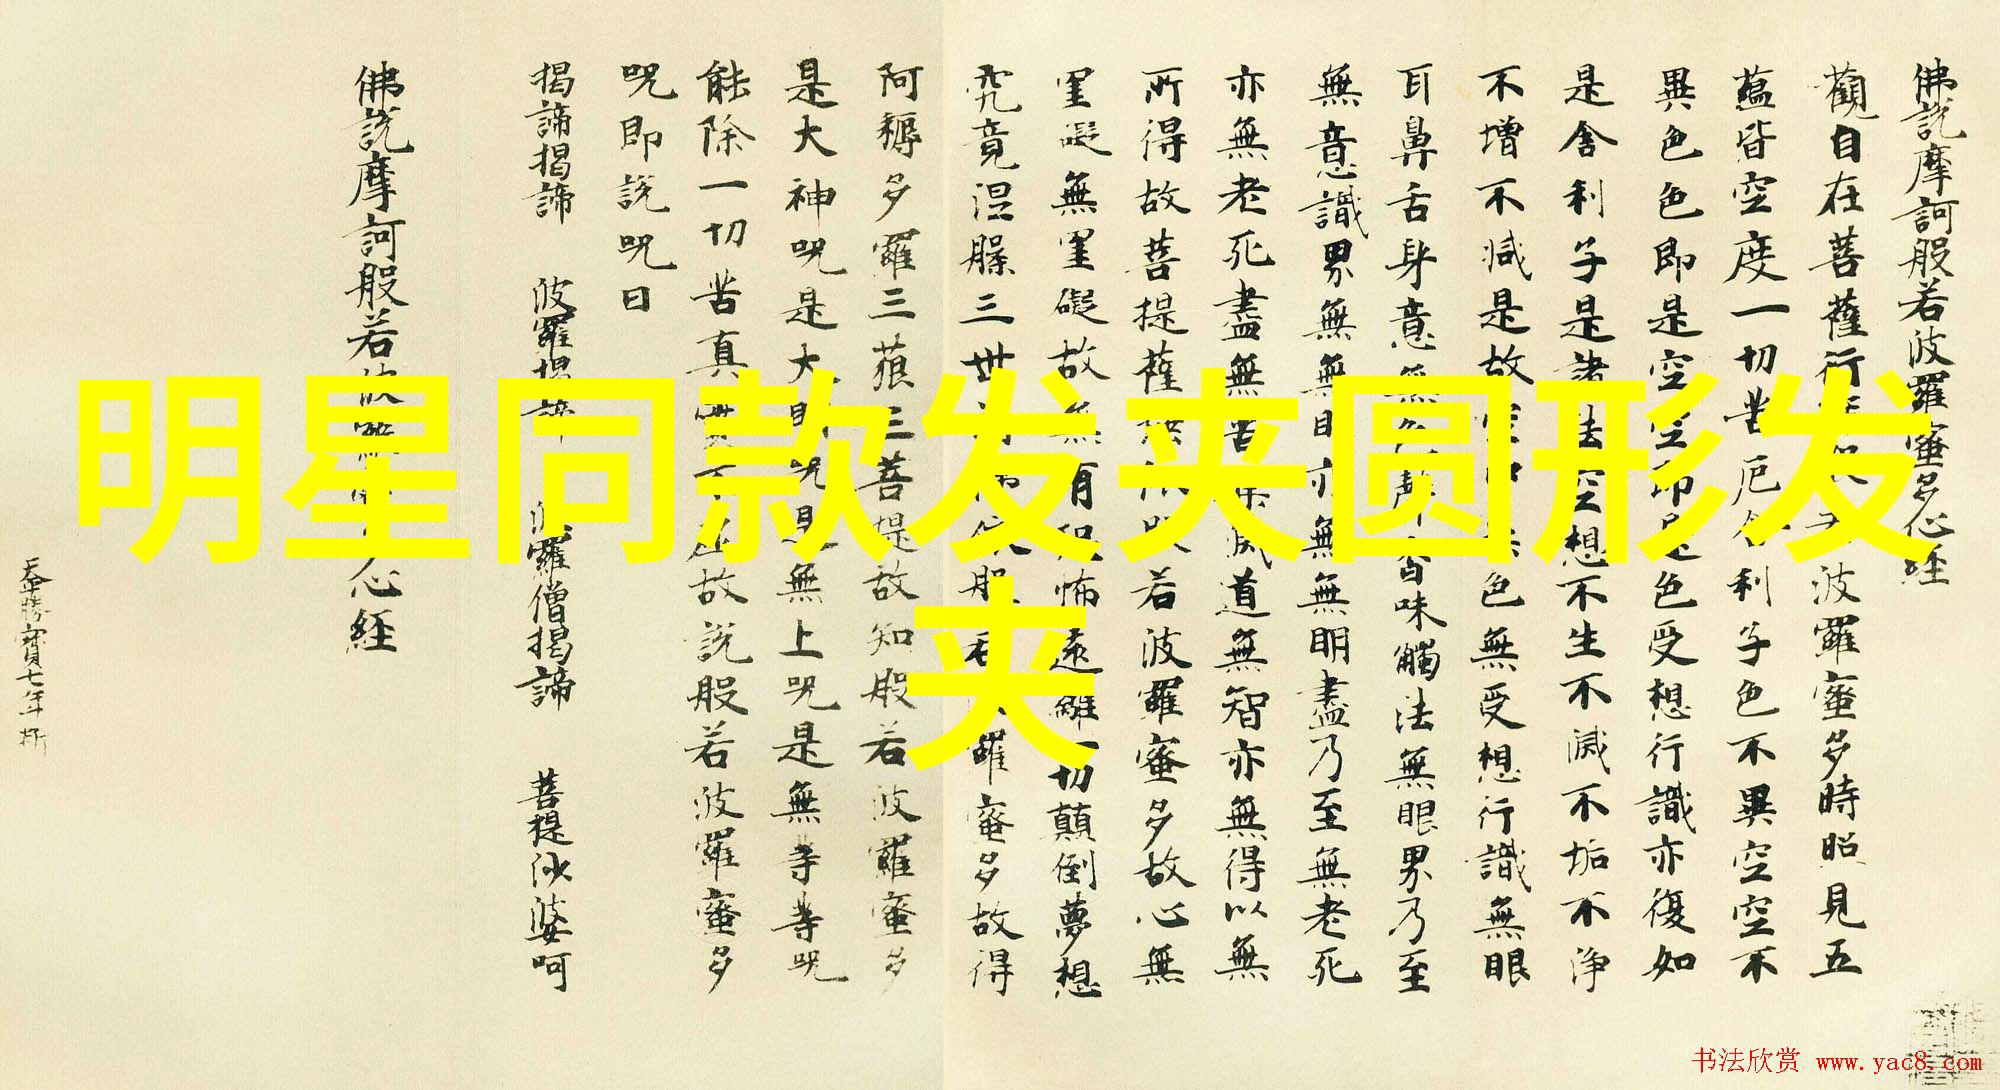 明星同款发夹圆形发
夹
佛説摩訶般若波羅蜜多心経
觀自在菩薩行若波羅蜜多時照見五
蘊皆空度一切苦厄舍利子色不異空空不
異色色即是空空即是色受想行識亦復如
是舍利子是諸法空想不生不滅不垢不淨
不增不減是故空色無受想行識無眼
耳鼻舌身意無聲香味觸法無眼界乃至
無意識界無無明亦無無明盡乃至無老死
亦無老死盡無苦集滅道無智亦無得以無
所得故菩提薩若波羅蜜多故心無
罣礙無罣礙故無有恐怖遠離一切顛倒夢想
究竟涅槃三世依般羅蜜多故得
阿耨多羅三藐三菩提故知般若波羅蜜多
是大神呪是大明呪是無上呪是無等等呪
能除一切苦真實不虛故説般若波羅蜜多
呪即説呪曰
揭諦揭諦 波羅揭諦 波羅僧揭諦 菩提沙婆呵
佛説摩訶般若波心経
勝寳七年
书法欣赏 www.yac8.com